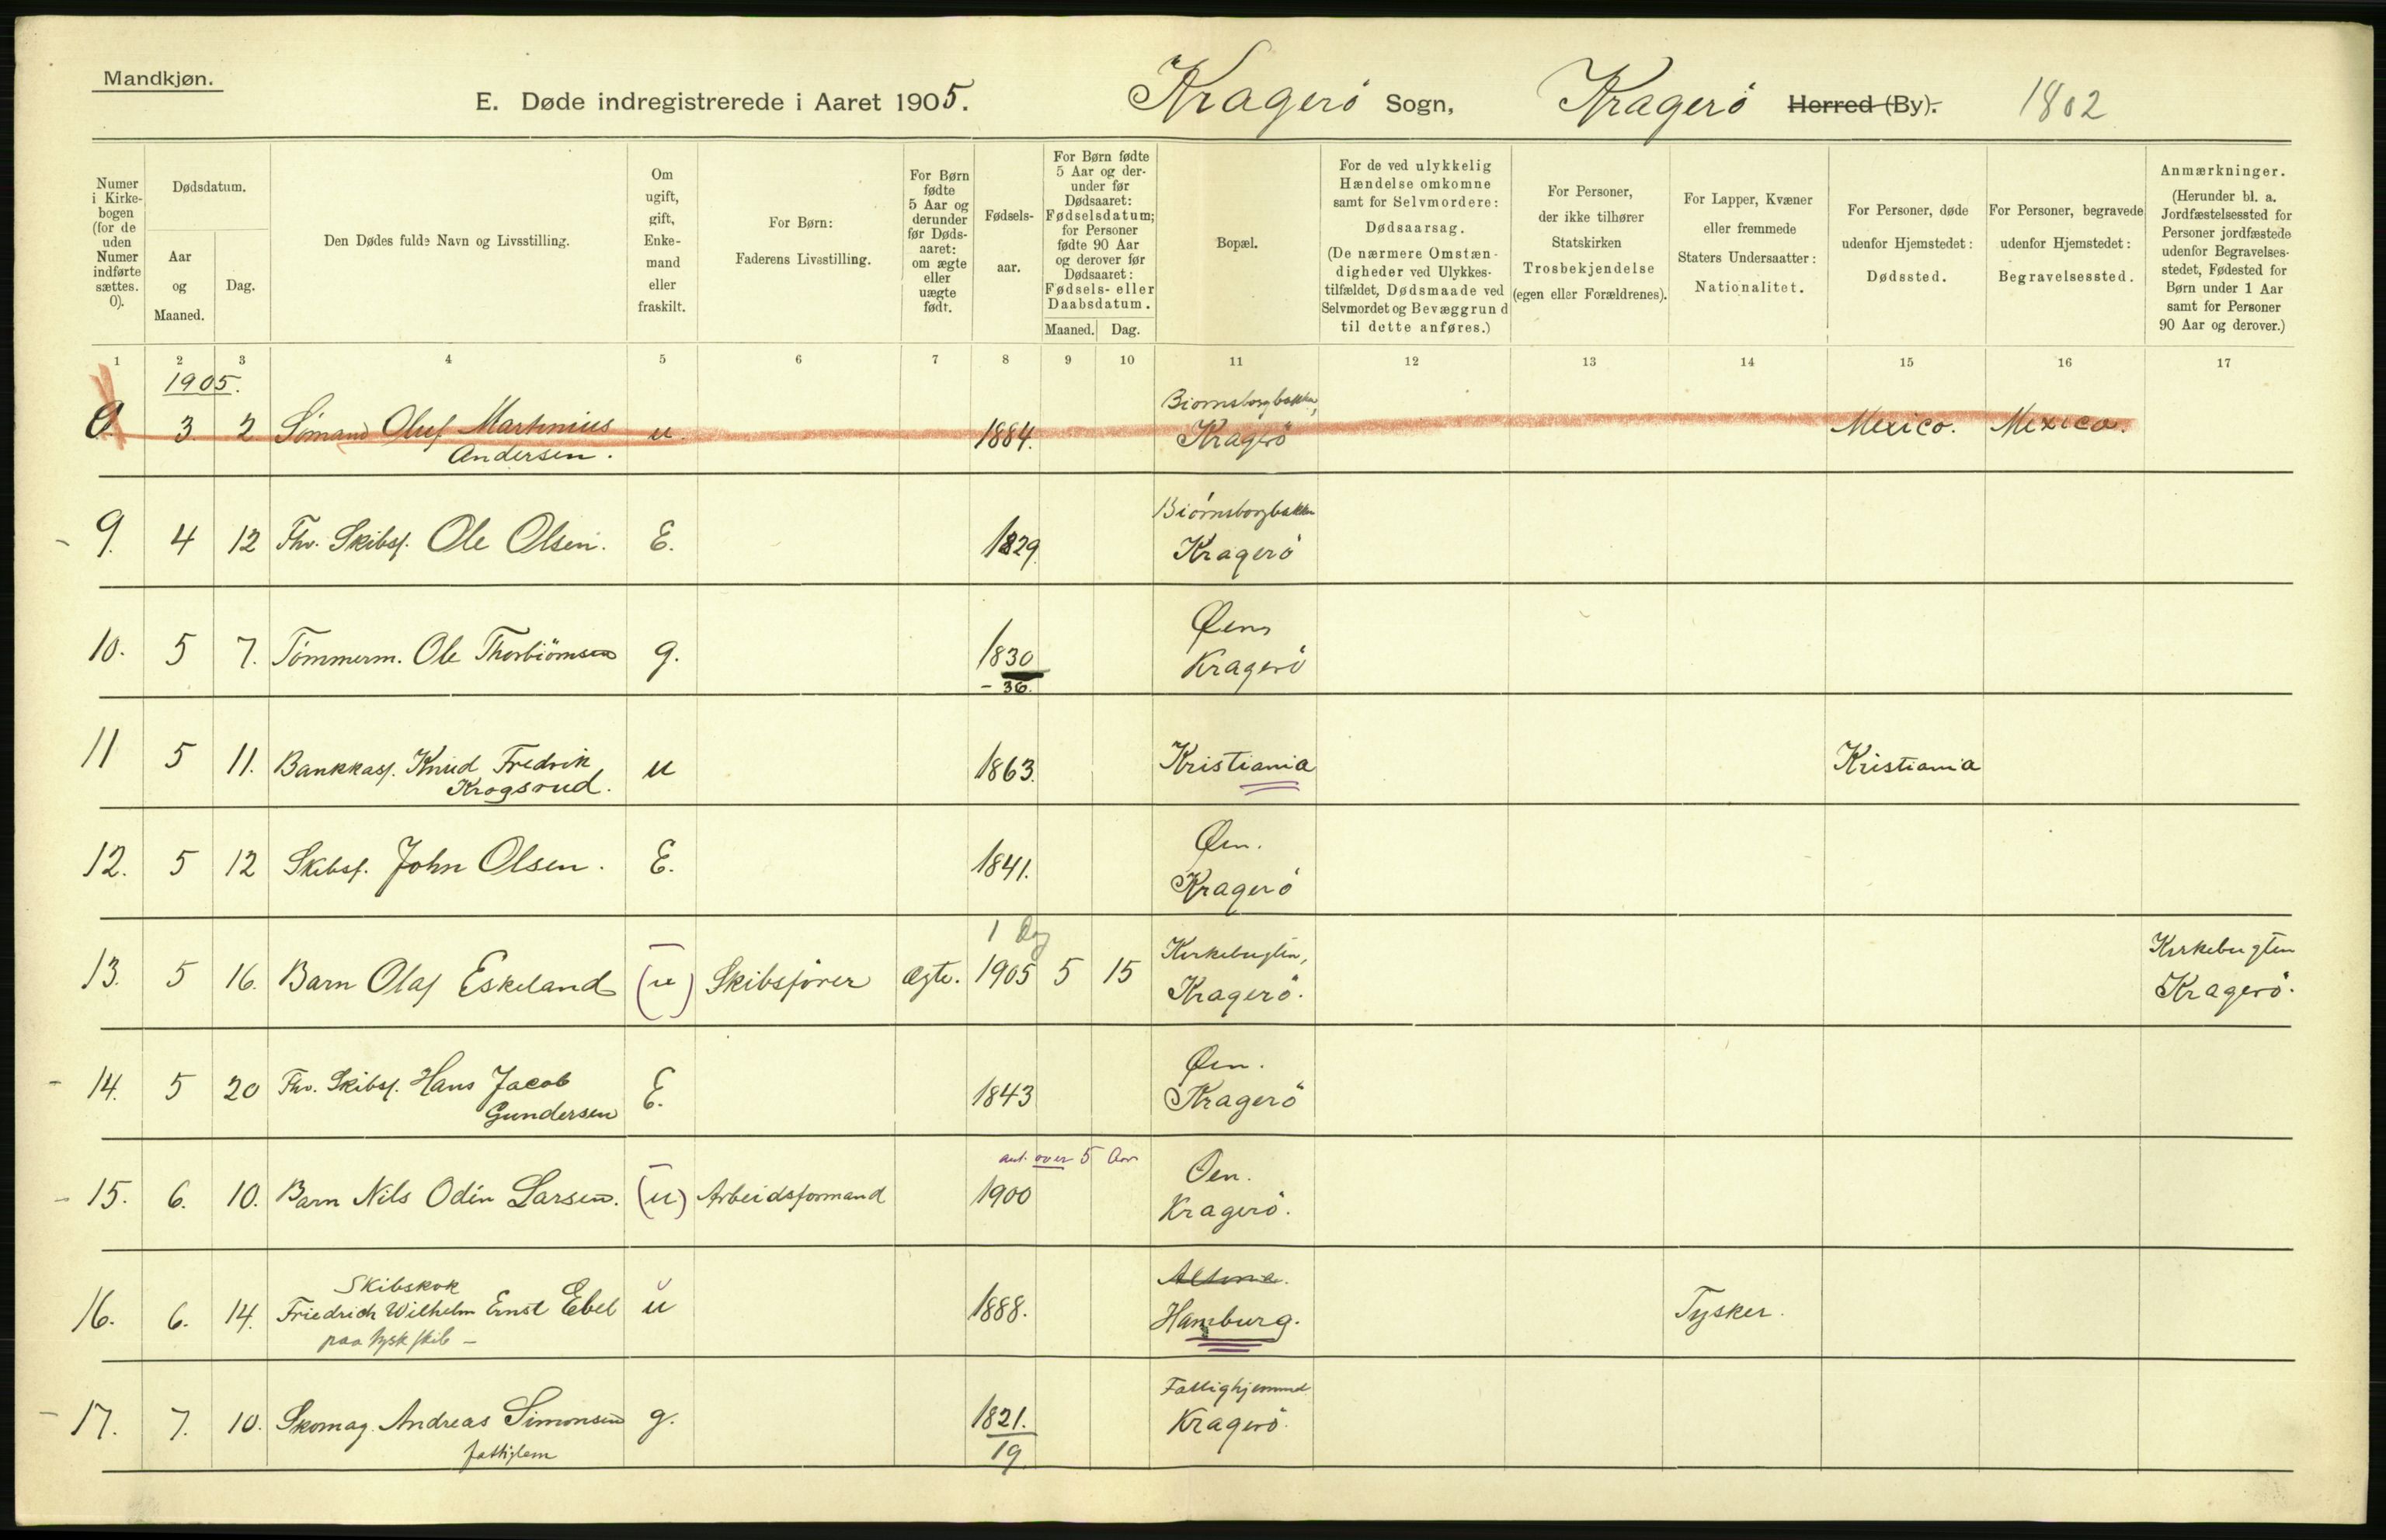 Mandkjøn.
E. Døde indregistrerede i Aaret 1905. Kragerö Sogn, Kragerö Herred (By). 1802
Numer i Kirkebogen (for de uden Numer indførte sættes. 0).
Dødsdatum.
Aar og Maaned.
Dag.
Den Dødes fulde Navn og Livsstilling.
Om ugift, gift, Enkemand eller fraskilt.
For Børn: Faderens Livsstilling.
For Børn fødte 5 Aar og derunder før Dødsaaret: om ægte eller uægte født.
Fødselsaar.
For Børn fødte 5 Aar og derunder før Dødsaaret: Fødselsdatum; for Personer fødte 90 Aar og derover før Dødsaaret: Fødsels- eller Daabsdatum.
Maaned. Dag.
Bopæl.
For de ved ulykkelig Hændelse omkomne samt for Selvmordere: Dødsaarsag. (De nærmere Omstændigheder ved Ulykkestilfældet, Dødsmaade ved Selvmordet og Bevæggrund til dette anføres.)
For Personer, der ikke tilhører Statskirken Trosbekjendelse (egen eller Forældrenes).
For Lapper, Kvæner eller fremmede Staters Undersaatter: Nationalitet.
For Personer, døde udenfor Hjemstedet: Dødssted.
For Personer, begravede udenfor Hjemstedet: Begravelsessted.
Anmærkninger. (Herunder bl. a. Jordfæstelsessted for Personer jordfæstede udenfor Begravelsesstedet, Fødested for Børn under 1 Aar samt for Personer 90 Aar og derover.)
1 2 3 4 5 6 7 8 9 10 11 12 13 14 15 16 17
1905.
Biornsborgbakken,
0 3 2 Sömand Oluf Martinius u. 1884. Kragerö Mexico. Mexico.
Andersen.
Biörnsborgbakken
9. 4 12 Fhv. Skibsf. Ole Olsen. E. 1829 Kragerö
Øen,
10. 5 7. Tömmerm. Ole Thorbiörnsen g. 1830 Kragerö
- 36.
11 5 11. Bankkass. Knud Fredrik u 1863. Kristiania Kristiania
Krogsrud.
Øen.
12. 5 12 Skibsf. John Olsen. E. 1841. Kragerö
1 Dag Kirkebugten, Kirkebugten
13. 5 16. Barn Olaf Eskeland (u) Skibsförer Ægte. 1905 5 15 Kragerö. Kragerö.
Øen.
14. 5 20 Fhv. Skibsf. Hans Jacob E. 1843 Kragerö
Gundersen
ant. over 5 Aar Øen.
15. 6. 10. Barn Nils Odin Larsen. (u) Arbeidsformand 1900 Kragerö.
Skibskok Altona.
16. 6. 14. Friedrich Wilhelm Ernst Ebel u 1888. Hamburg. Tysker.
paa tysk skib -
Fattighjemmet
17. 7. 10. Skomag. Andreas Simonsen g. 1821. Kragerö.
fattiglem 19